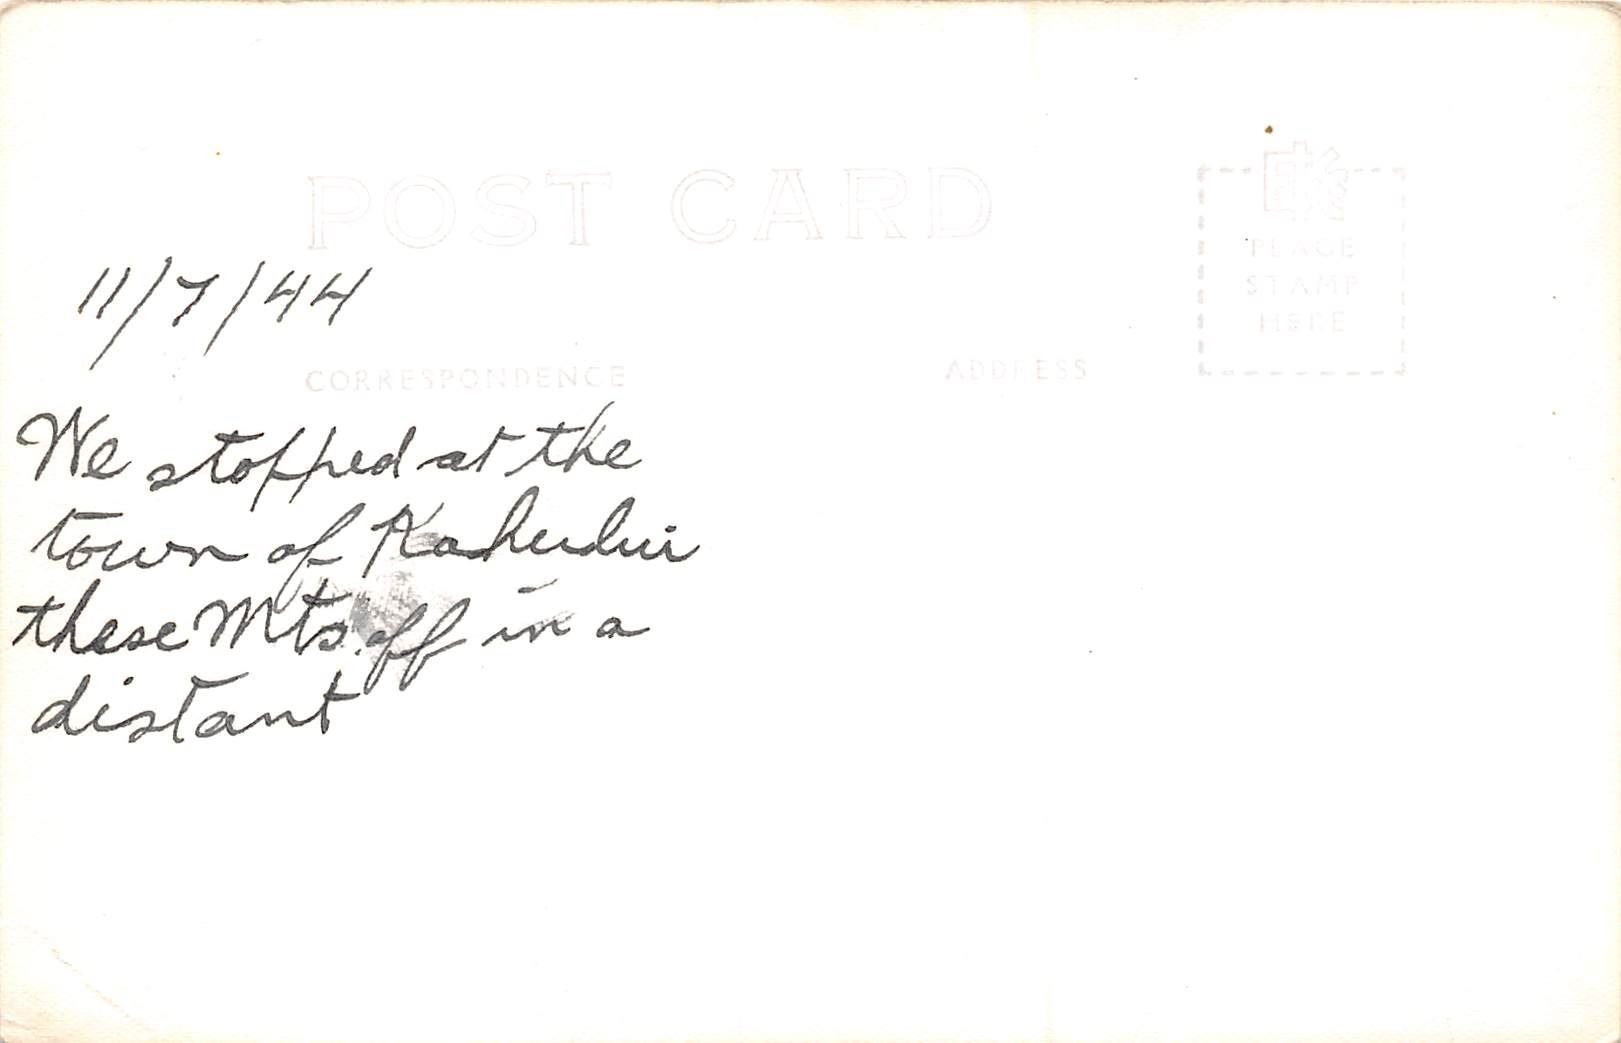 POST CARD
EKC
PLACE
STAMP
HERE
11/7/44
CORRESPONDENCE
ADDRESS
We stopped at the
town of
these Mts. off in a
distant